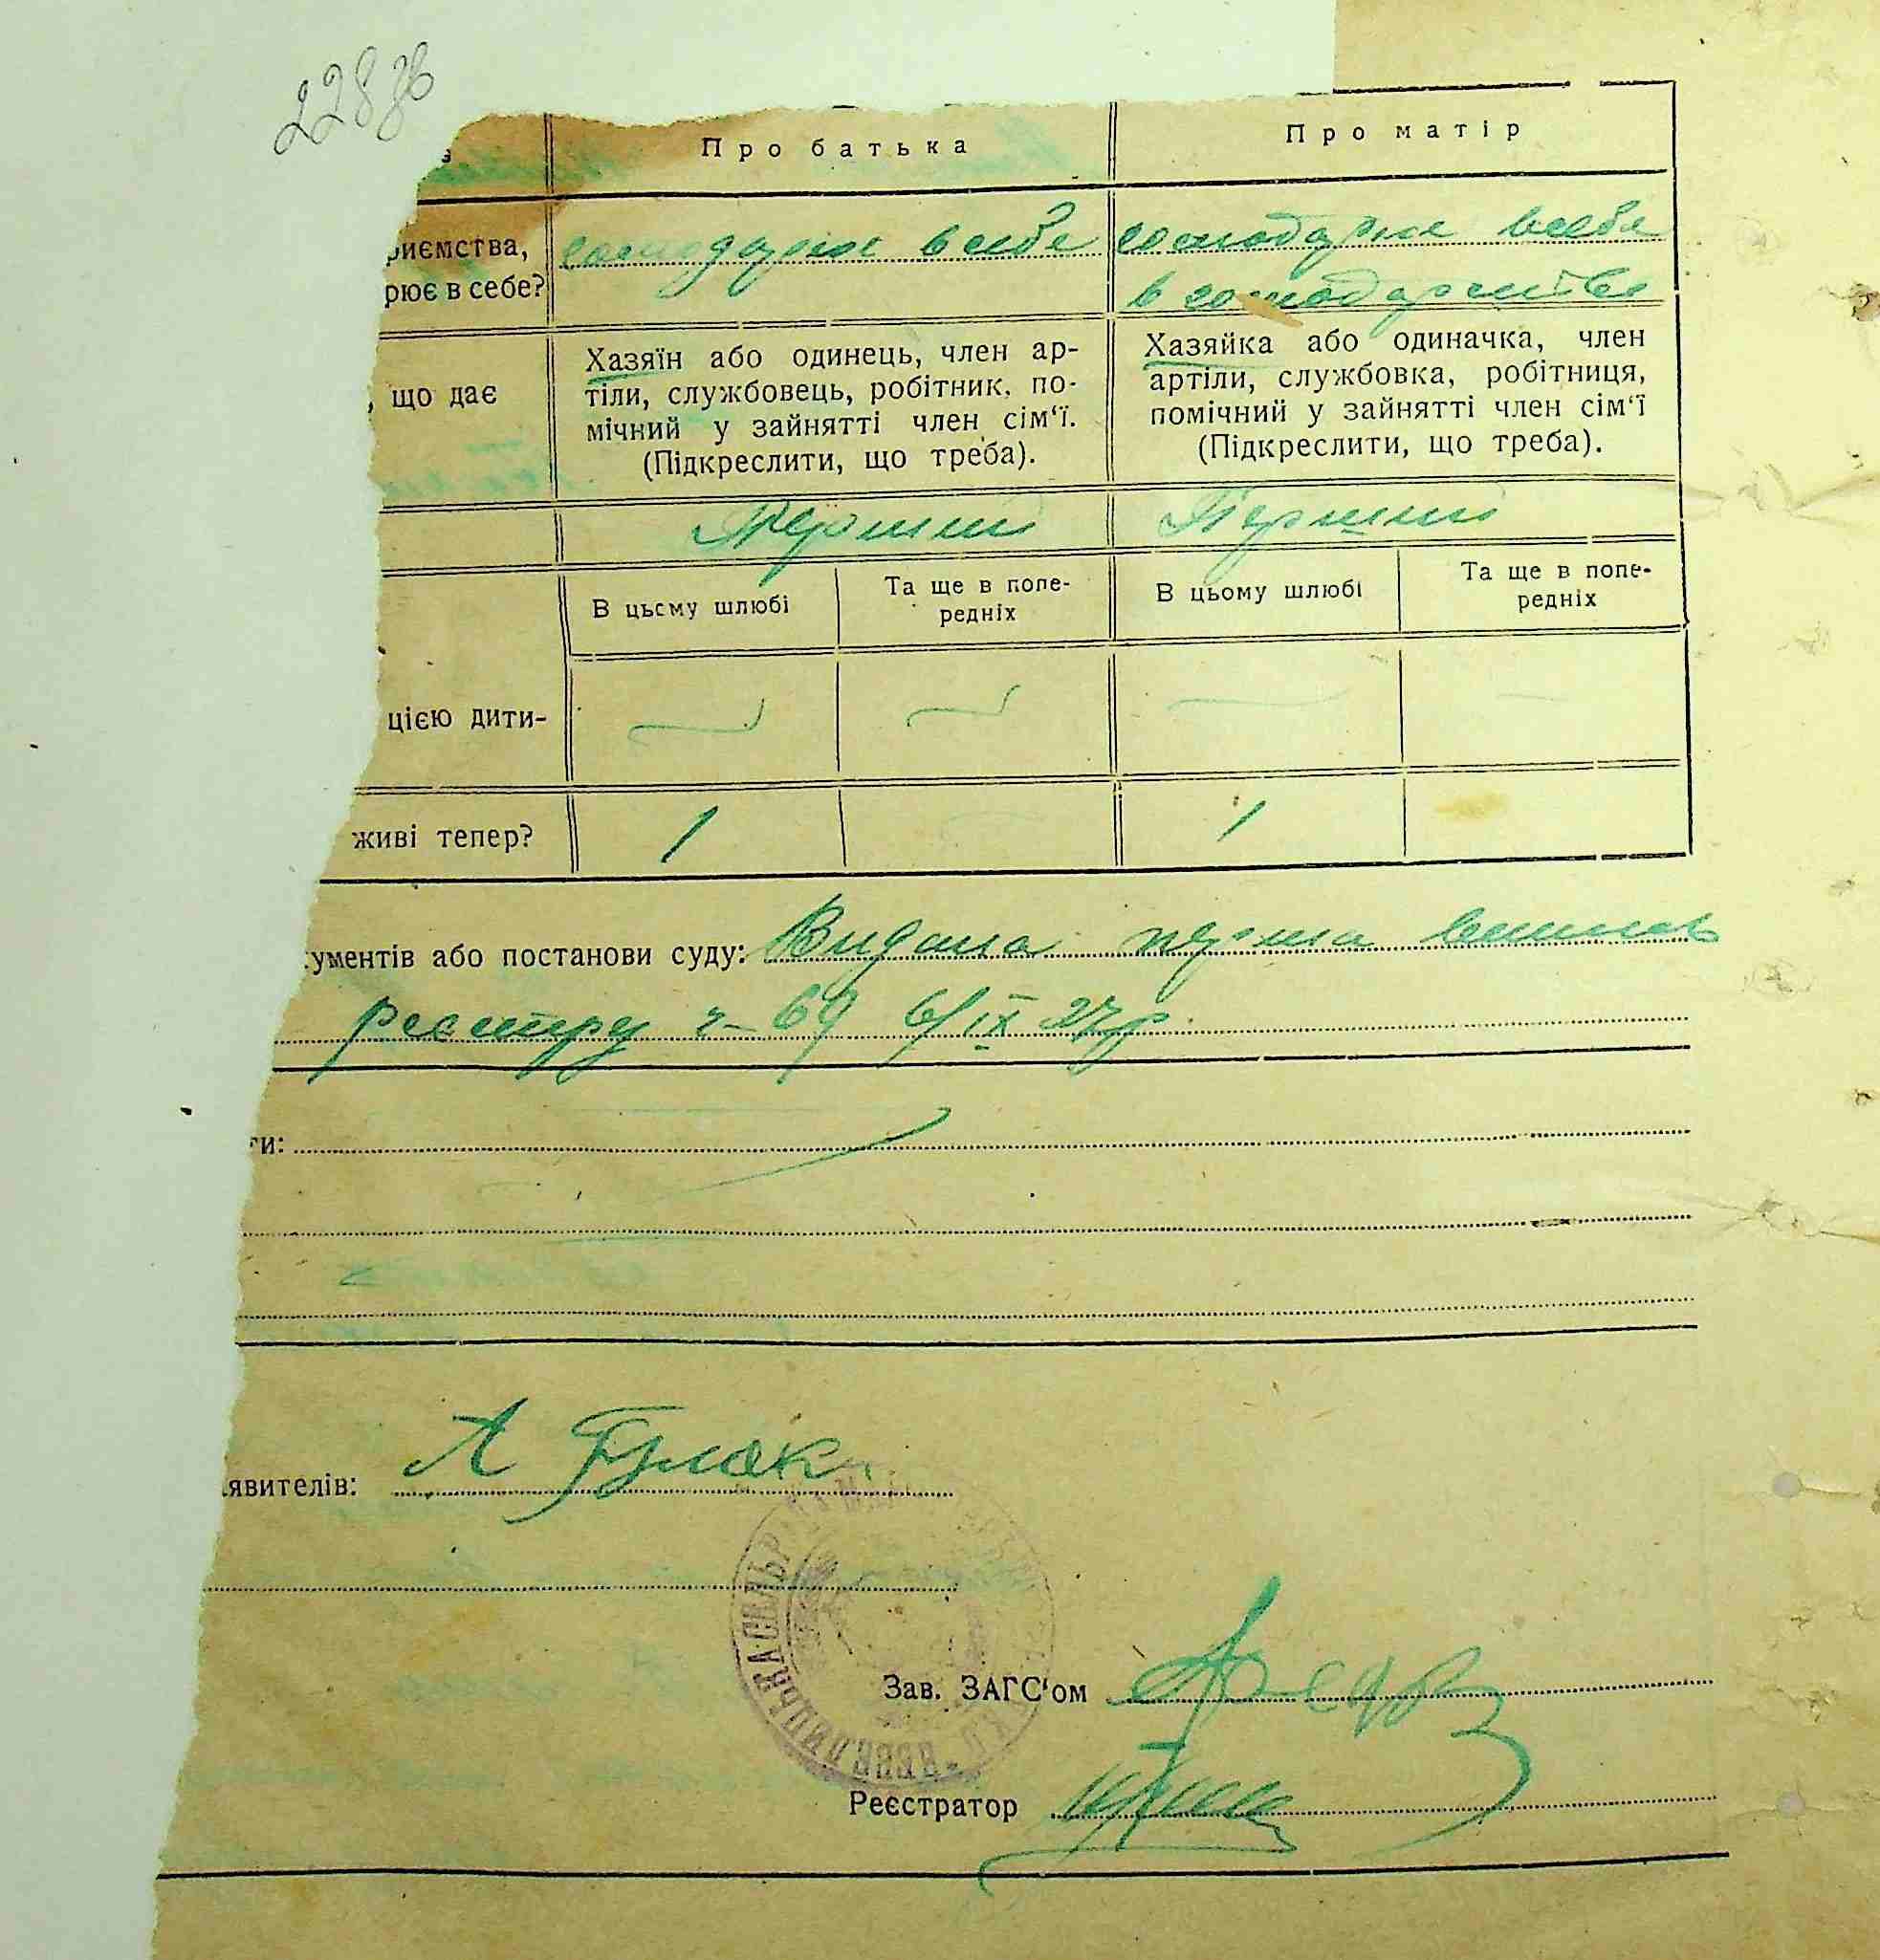 228зв
Про батька
Про матір
риємства,
рює в себе?
господарює в себе
господарює в себе
в господарстві
, що дає
Хазяїн або одинець, член ар-
тіли, службовець, робітник, по-
мічний у зайнятті член сім‘ї.
(Підкреслити, що треба).
Хазяйка або одиначка, член
артіли, службовка, робітниця,
помічний у зайнятті член сім‘ї
(Підкреслити, що треба).
Перший
Перший
В цьому шлюбі
Та ще в попе-
редніх
В цьому шлюбі
Та ще в попе-
редніх
цією дити-
живі тепер?
1
1
кументів або постанови суду: Видана перша виписъ
реєстру ч- 69 6/IX 27р.
ти:
явителів: А Гулак
Зав. ЗАГС‘ом
Реєстратор